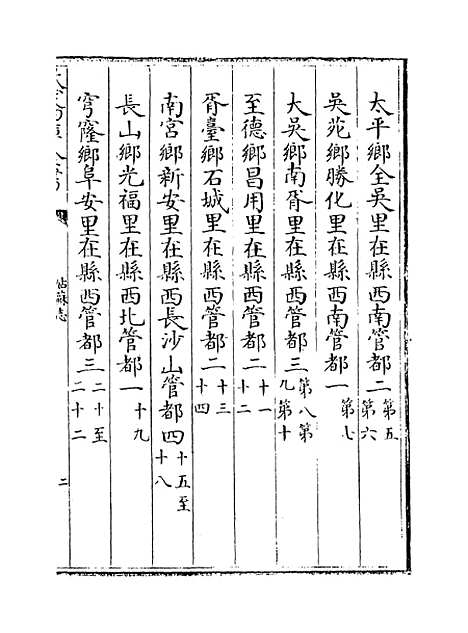 太平鄉全吳里在縣西南管都二第五第六
吳苑鄉勝化里在縣西南管都一第七
大吳鄉南胥里在縣西管都三第八第九第十
至德鄉昌用里在縣西管都二十一十二
胥臺鄉石城里在縣西管都二十三十四
南宮鄉新安里在縣西長沙山管都四十五至十八
長山鄉光福里在縣西北管都一十九
穹窿鄉阜安里在縣西管都三二十至二十二
姑蘇志
二